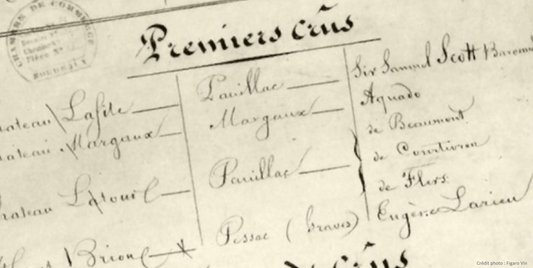 CHAMBRE DE COMMERCE
BORDEAUX
Premiers crûs
Lafite Pauillac Sir Samuel Scott
Margaux Margaux Aguado
de Beaumont
Latour Pauillac de Courtivron
de Flers
Brion Pessac (Graves) Eugène Larieu
crûs
Crédit photo : Figaro Vin